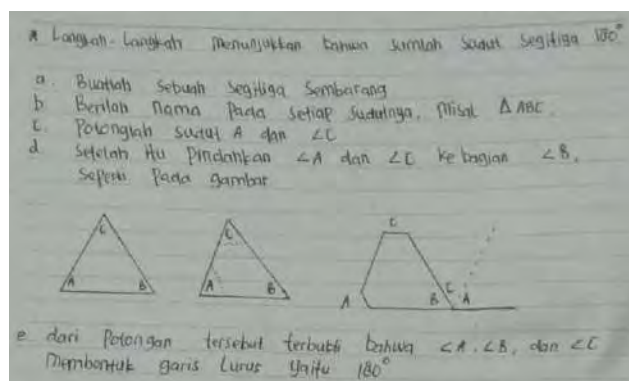 * Langkah-Langkah Menunjukkan bahwa Jumlah Sudut Segitiga 180°
a. Buatlah Sebuah Segitiga Sembarang
b Berilah nama Pada Setiap Sudutnya, Misal Δ ABC.
c. Potonglah Sudut A dan ∠C
d Setelah itu Pindahkan ∠A dan ∠C ke bagian ∠B,
Seperti Pada gambar
C C C
A B A B A B C A
e dari Potongan tersebut terbukti bahwa ∠A, ∠B, dan ∠C
Membentuk garis Lurus Yaitu 180°